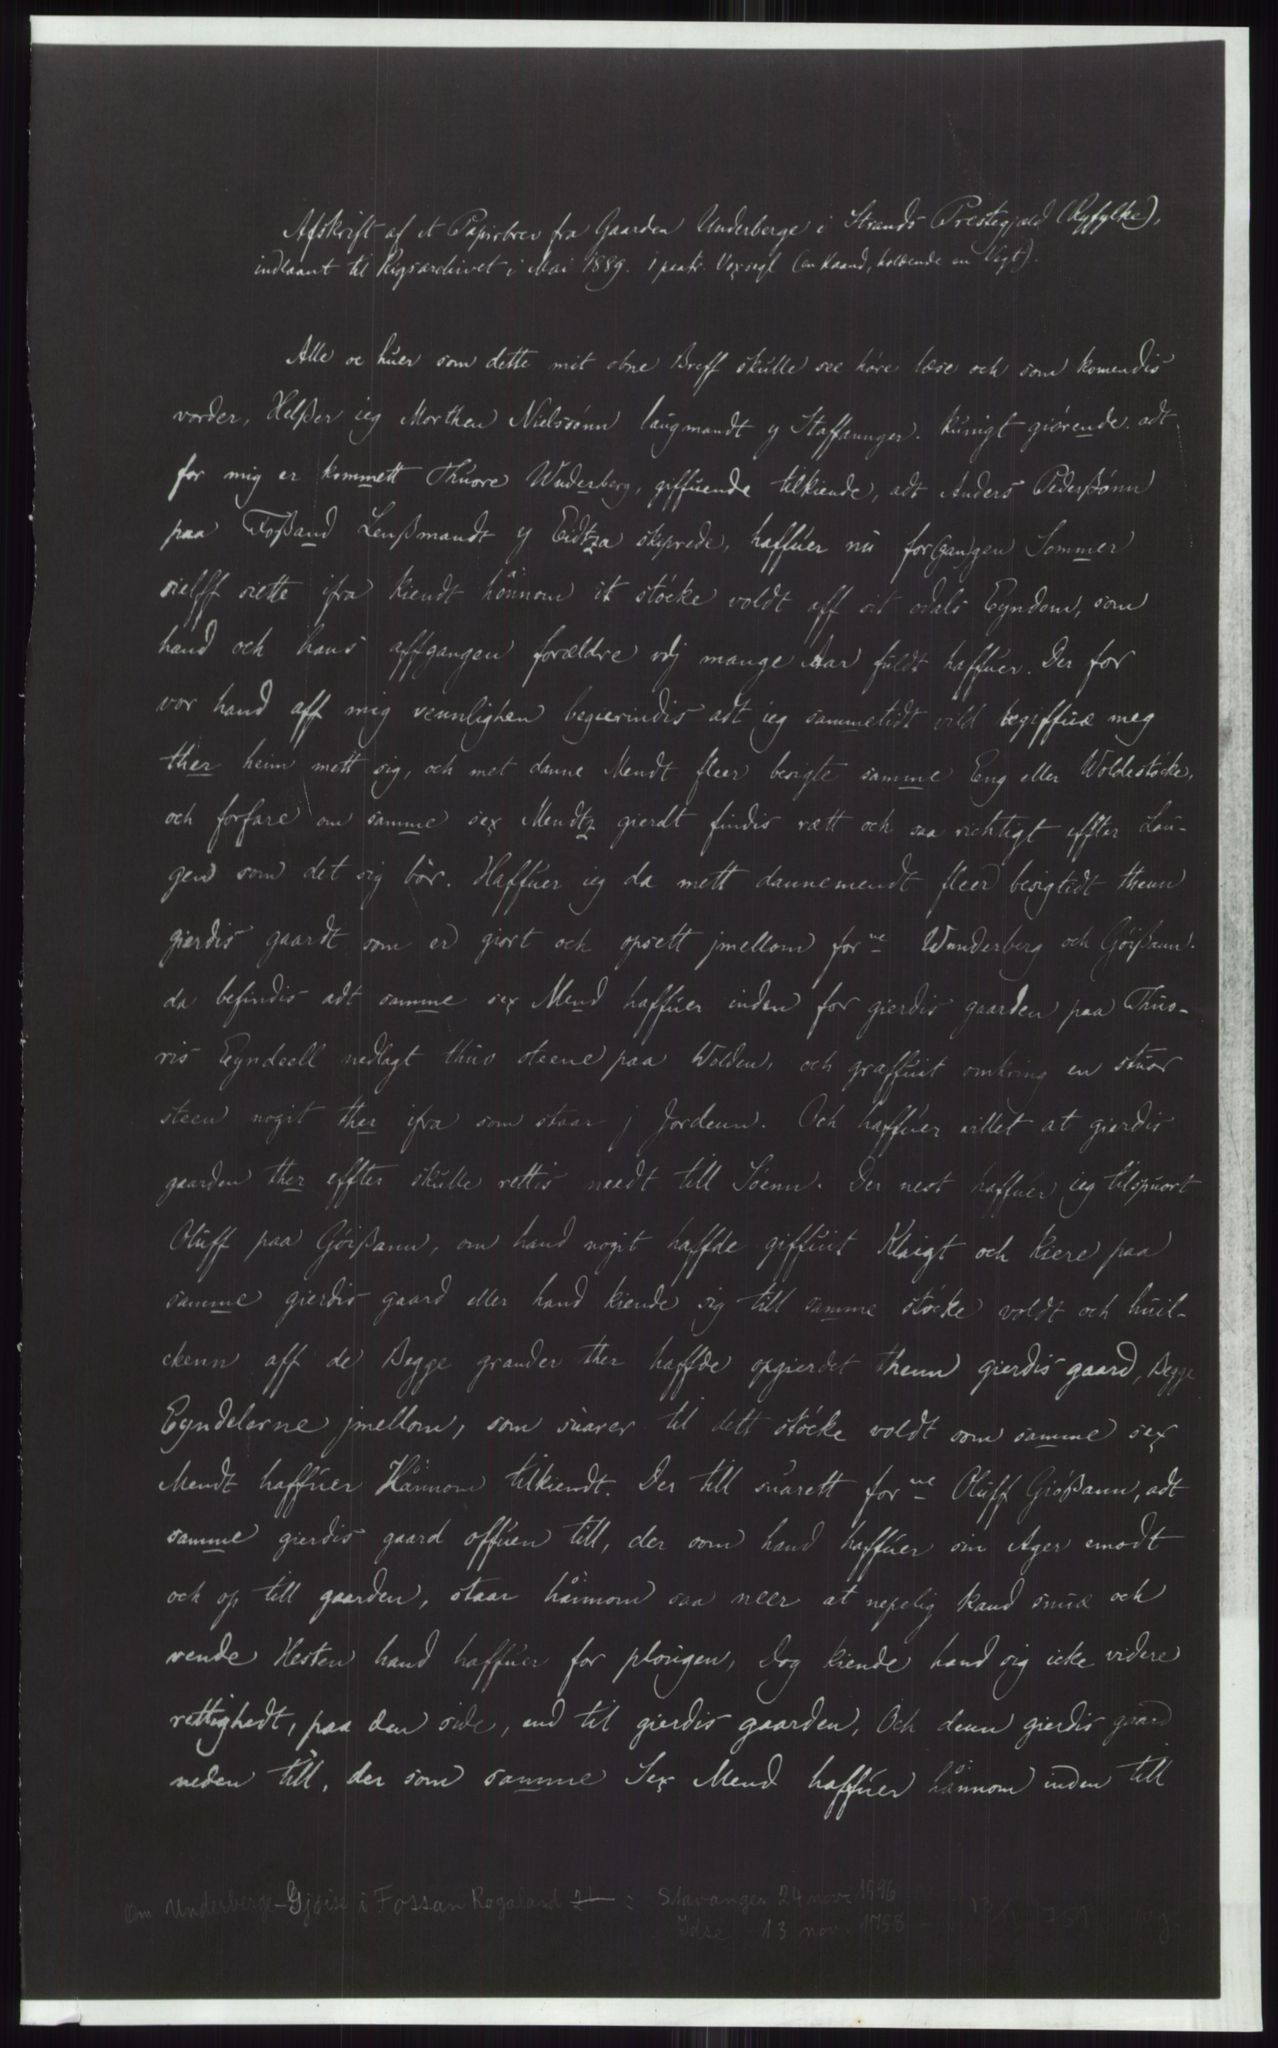 Afskrift af et Papirbrev fra Gaarden Underberge i Strands Prestegjæld (Ryfylke),
indlaant til Rigsarchivet i Mai 1889. 1 paatr. Voxsegl (en Haand, holdende en Vegt).
Alle oc huer som dette mit obne Breff skulle see høre læse och som komendis
vorder, Helßer ieg Morthen Nielssønn laugmandt y Staffaunger. kunigt giørende adt
for mig er kommett Thuore Wnderberg, giffuende tilkiende, adt Anders Pederßønn
paa Foßand Lenßmandt y Eidtza skiprede, haffuer nu for(gan)gen Sommer
sielff siette ifra kiendt hönnom it støcke voldt aff sit odals Eyndom, som
hand och hans affgangen forældre vdj mange Aar fuldt haffuer. Der for
vor hand aff mig vennlighen begierindis adt ieg sammetidt vild begiffuæ meg
ther heim mett sig, och met danne Mendt fleer besigte samme Eng eller Woldestøcke,
och forfare om samme sex Mendtz gierdt findis rætt och saa richtigt effter Lau-
gen som det sig bör. Haffuer ieg da mett dannemendt fleer besigtidt thenn
gierdis gaardt som er giort och opsett jmellom forne Wnnderberg och Göißann.
da befindis adt samme sex Mend haffuer inden for gierdis gaarden paa Thuo-
ris Eyndeell nedlagt thuo steene paa Wolden, och graffuit omkring en stuor
steen nogit ther ifra som staar j Jordenn. Och haffuer villet at gierdis
gaarden ther effter skulle rettis needt till Söenn. Der nest haffuer ieg tilspuort
Oluff paa Göißann, om hand nogit haffde giffuit Klaigt och kiere paa
samme gierdis gaard eller hand kiende sig till samme støcke voldt och huil-
ckenn aff de Begge grander ther haffde opgierdet thenn gierdis gaard, Begge
Eyndelerne jmellom, som suarer til dett støcke voldt som samme sex
Mendt haffuer Hånnom tilkiendt. Der till suarett forne Oluff Giößann, adt
samme gierdis gaard offuen till, der som hand haffuer sin Ager emodt
och op till gaarden, staar hånnom saa neer at nepelig kand snuæ och
vende Hesten hand haffuer for plougen, Dog kiende hand sig icke videre
rettighedt, paa den side, end til gierdis gaarden, Och denn gierdis gaard
neden till, der som samme Sex Mend haffuer hånnom inden till
Om Underberge-Gjøise i Fossan Rogaland : Stavanger 24 nov. 1596
Idse 13 nov. 1758